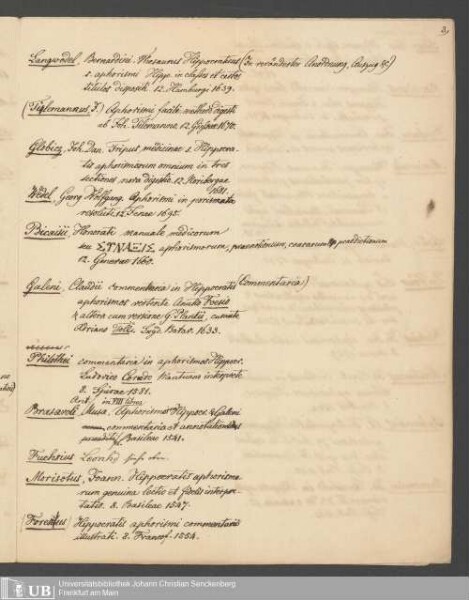 3
Langwedel, Bernardini. Thesaurus Hippocraticus (In veränderter Anordnung, Auszug &)
s. aphorismi Hipp. in classes et certos
titulos dispositi. 12. Hamburgi 1639.
(Tilemannus J.) Aphorismi facile methodo digesti
ab Joh. Tilemanno. 12. 1670.
Joh. Dan. Tripus medicinae s. Hippocra-
tis aphorismorum omnium in tres
sectiones nova digestio. 12.
1681.
Wedel Georg Wolffgang. Aphorismi in porismata
resoluti. 12. Jenae 1695.
Honorati manuale medicorum
seu ΣΥΝΑΞΙΣ aphorismorum, praenotionum, coacarum & praedictionum
12. Genevae 1660.
Galeni Claudii commentaria in Hippocratis (Commentaria)
aphorismos vertente Anutio Foesio
& altera cum versione G. Plantii, curante
Adriano Tolls. Lugd. Batav. 1633.
Philothei commentaria in aphorismos Hippocr.
Ludovico Corado Mantuano interprete
8. Spirae 1581.
Ant. in VIII libros
Brasavoli, Musa, Aphorismos Hippocr. & Galeni
commentaria et annotationes
Basileae 1541.
Fuchsius Leonh.
Morisotus, Joann. Hippocratis aphorismo-
rum genuina lectio et fidelis interpre-
tatio. 8. Basileae 1547.
(Forestus) Hippocratis aphorismi commentariis
illustrati. 8. Francof. 1554.
UB Universitätsbibliothek Johann Christian Senckenberg
Frankfurt am Main